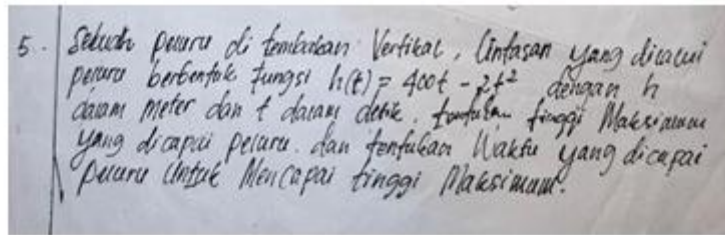 5. Sebuah peluru di tembakan Vertikal, lintasan yang dilalui
peluru berbentuk fungsi h(t) = 400t - 2t² dengan h
dalam meter dan t dalam detik. tentukan tinggi Maksimum
yang dicapai peluru. dan tentukan Waktu yang dicapai
peluru Untuk Mencapai tinggi Maksimum.